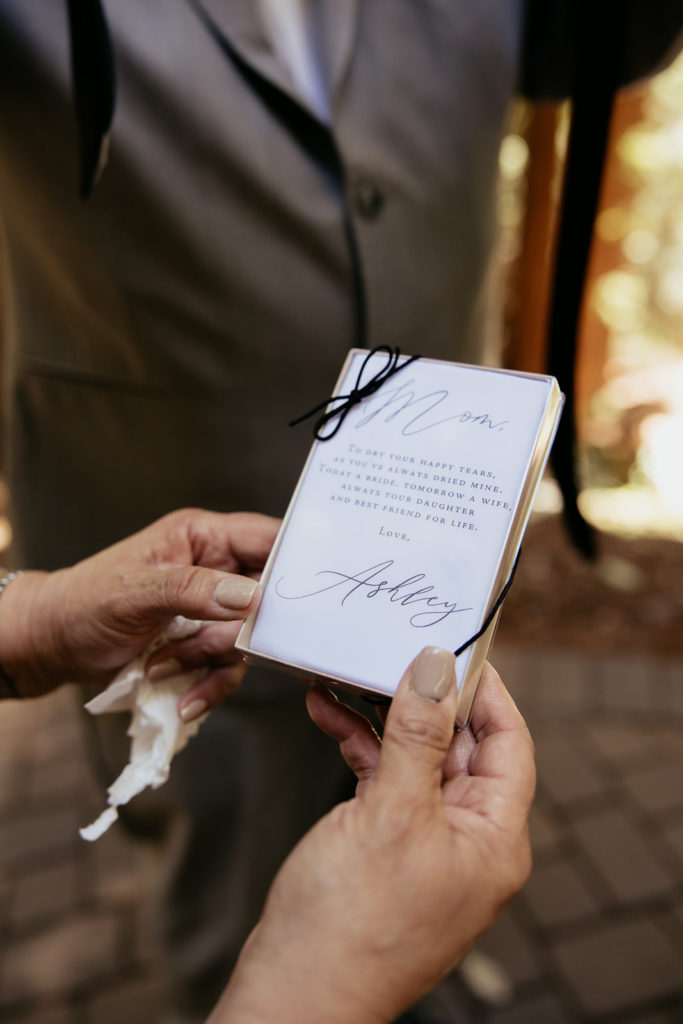 Mom,
To dry your happy tears,
as you've always dried mine.
Today a bride, tomorrow a wife,
always your daughter
and best friend for life.
Love,
Ashley